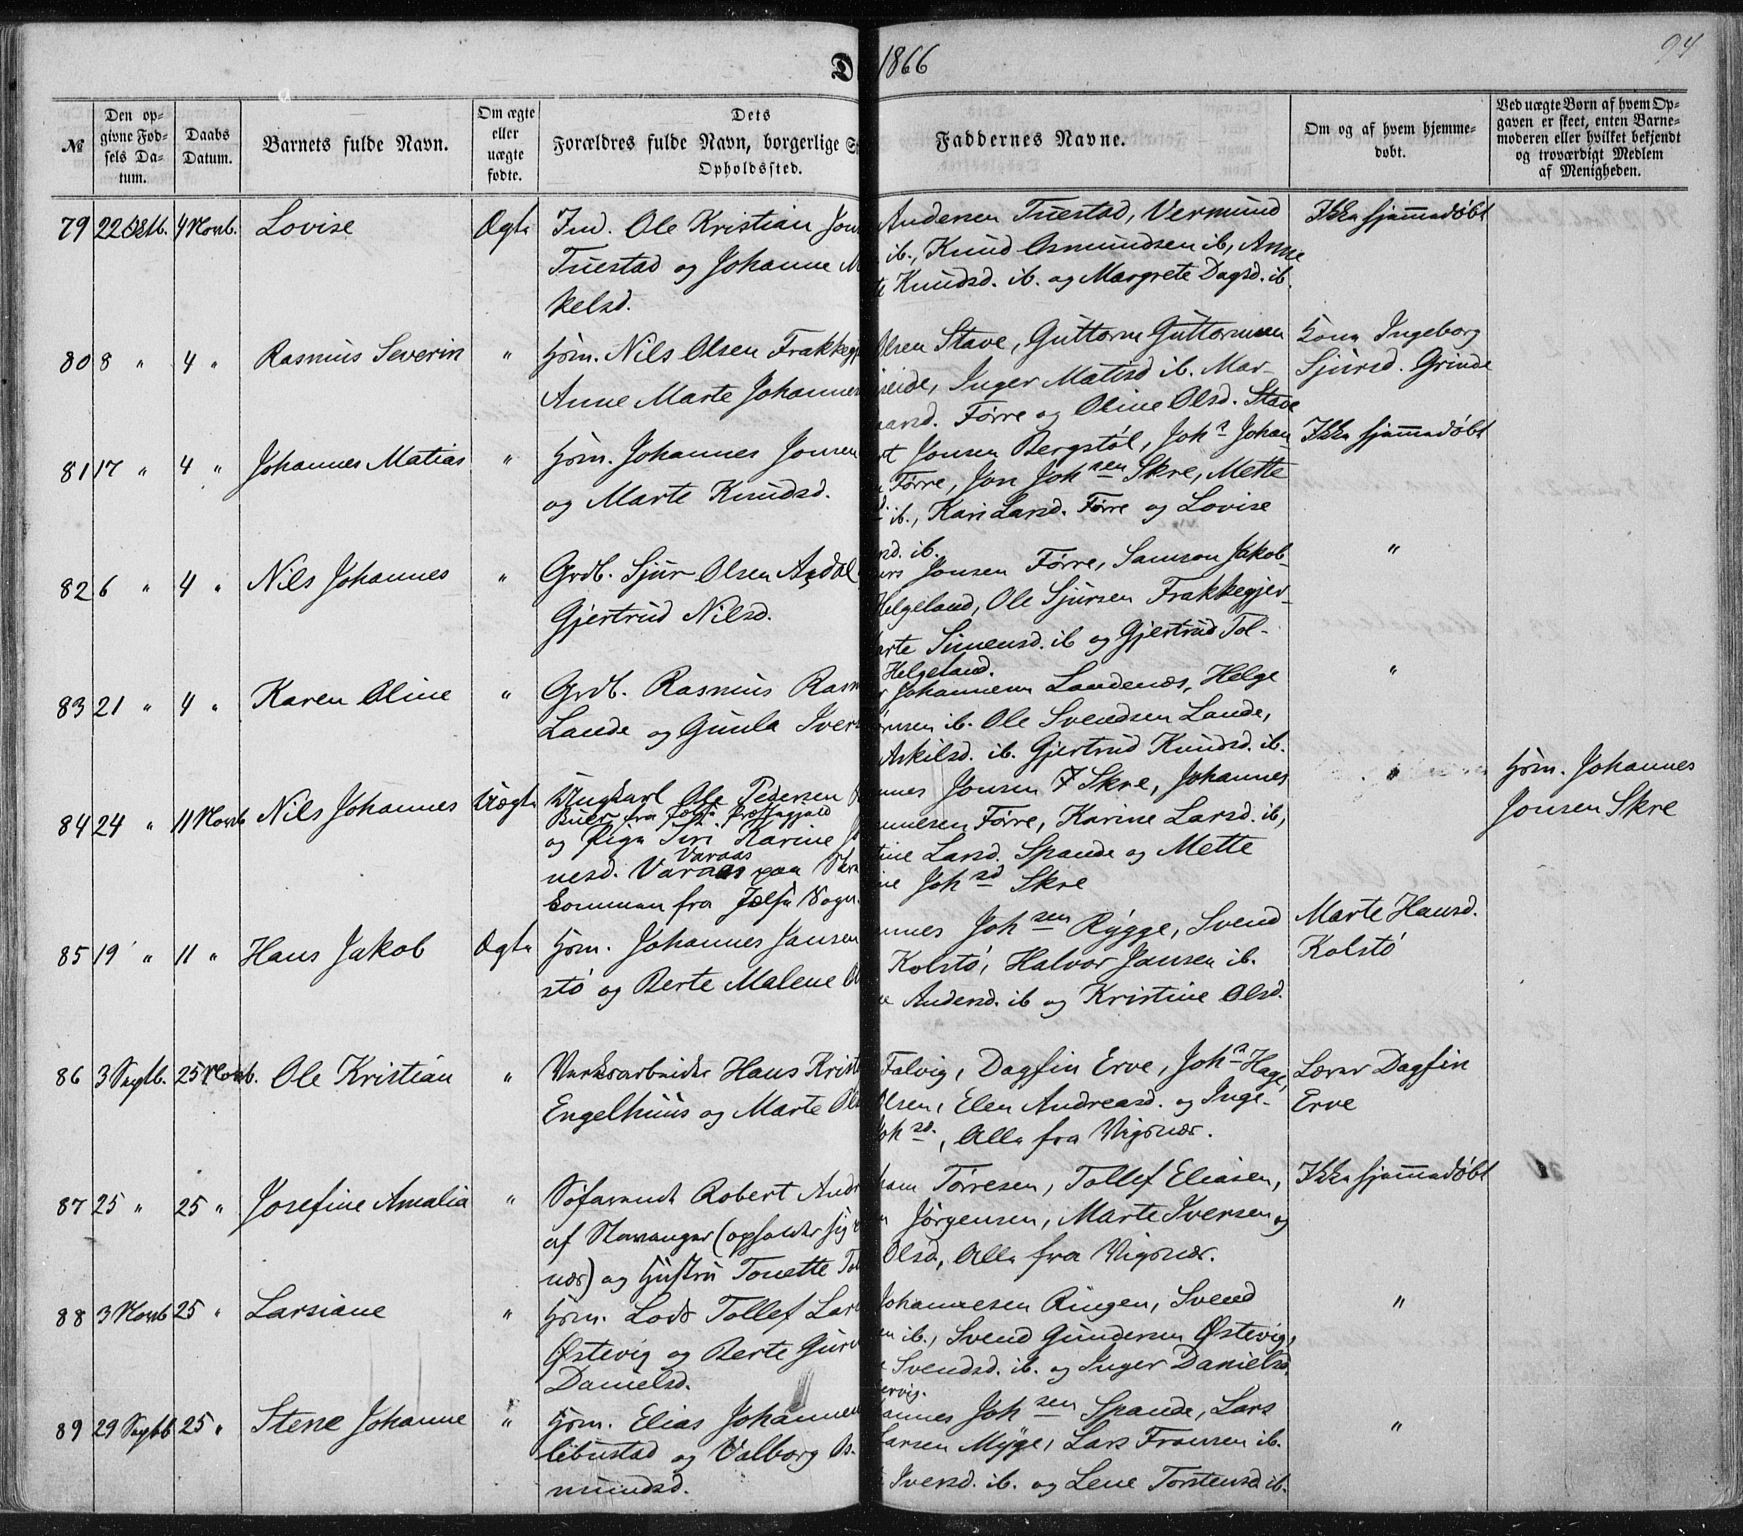 D 1866
94
№
Den op-
givne Fød-
sels Da-
tum.
Daabs
Datum.
Barnets fulde Navn.
Om ægte
eller
uægte
fødte.
Dets
Forældres fulde Navn, borgerlige S
Opholdssted.
Faddernes Navne.
Om og af hvem hjemme-
døbt.
Ved uægte Børn af hvem Op-
gaven er skeet, enten Barne-
moderen eller hvilket bekjendt
og troværdigt Medlem
af Menigheden.
79 22 Oktb. 4 Novb. Lovise Ægte Ind. Ole Kristian Jons
Tuestad og Johanne M
kelsd.
Andersen Tuestad, Vermund
ib., Knud Osmundsen ib, Anne
Knudsd. ib. og Margrete Dagsd. ib.
Ikke hjemmedøbt
80 8 " 4 " Rasmus Severin " Hsm. Nils Olsen Frakkegj
Anne Marte Johannes
Olsen Stave, Guttorm Guttormsen
eide, Inger Matisd ib. Mar-
aarsd. Førre og Oline Olsd. Stave
Kona Ingeborg
Sjursd. Grinde
81 17 " 4 " Johannes Matias " Hsm. Johannes Jonsen
og Marte Knudsd.
rt Jonsen Bergstøl, Joh.s Johan-
n Førre, Jon Joh.sen Skre, Mette
ib., Kari Larsd. Førre og Lovise
rsd. ib.
Ikke hjemmedøbt
82 6 " 4 " Nils Johannes " Grdb. Sjur Olsen Aadal
Gjertrud Nilsd.
urs Jonsen Førre, Samson Jakob-
Helgeland, Ole Sjursen Frakkegjer-
arte Simensd. ib og Gjertrud Tol-
Helgeland.
"
83 21 " 4 " Karen Oline " Grdb. Rasmus Rasm
Lande og Gunla Ivers
Johannesen Landenæs, Helge
ørnsen ib. Ole Svendsen Lande,
Askilsd. ib. Gjertrud Knudsd. ib.
"
84 24 " 11 Novb Nils Johannes Uægte Ungkarl Ole Pedersen
og Pige Siri Karine J
Varaas
nesd. Varaas paa Skre
kommen fra Jelsø Sogn.
nnes Jonsen Skre, Johannes
nnesen Førre, Karine Larsd. ib,
tine Larsd. Spande og Mette
ine Joh.sd Skre
"
Hsm. Johannes
Jonsen Skre
85 19 " 11 " Hans Jakob Ægte Hsm. Johannes Jansen
stø og Berte Malene O
nnes Joh.sen Rygge, Svend
Kolstø, Halvor Jansen ib.
Andersd. ib og Kristine Olsd.
Marte Hansd.
Kolstø
86 3 Septb. 25 Novb. Ole Kristian " Værksarbeider Hans Krist
Engelhuus og Marte Ols
Falvig, Dagfin Erve, Joh.s Hage,
Olsen, Elen Andreasd. og Inge-
Joh.sd., Alle fra Vigsnæs.
Lærer Dagfin
Erve
87 25 " 25 " Josefine Amalia " Søfarende Robert Andr
af Stavanger (opholder sig
næs) og Hustru Tonette To
ham Tørresen, Tollef Eliasen,
n Jørgensen, Marte Iversen og
Olsd, Alle fra Vigsnæs.
Ikke hjemmedøbt
88 3 Novb 25 " Larsiane " Hsm. Lods Tollef Lars
Østevig og Berte Guru
Danielsd.
Johannesen Ringen, Svend
en ib., Svend Gundersen Østevig,
Svendsd. ib. og Inger Danielsd.
ervig.
"
89 29 Septb 25 " Stene Johanne " Hsm. Elias Johannesen
libustad og Valborg Os-
mundsd.
annes Joh.sen Spande, Lars
Larsen Myge, Lars Fransen ib.
Iversd. ib. og Lene Torstensd. ib.
"